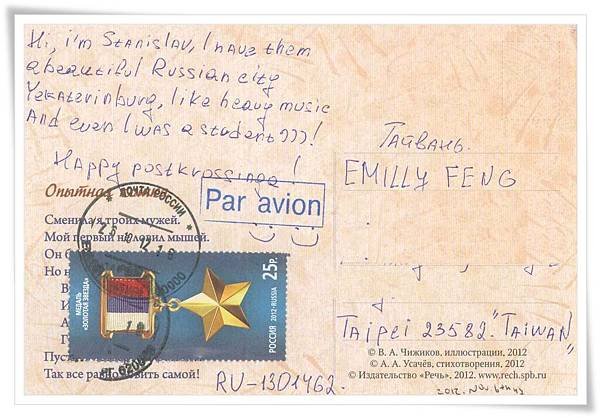 Hi, i'm Stanislav, I have them
a beautiful Russian city
Yekaterinburg, like heavy music
And even I was a student)))!
Happy postkrossinga!
Тайвань.
EMILLY FENG
Taipei 23582. "TAIWAN"
Опытная
Par avion
ПОЧТА РОССИИ
Сменила я троих мужей.
Мой первый не ловил мышей.
Он б
Но н
В
И
А
Г
Пуст
Так все равно ловить самой!
МЕДАЛЬ
«ЗОЛОТАЯ ЗВЕЗДА»
РОССИЯ 2012·RUSSIA
25р.
RU-1301462.
© В. А. Чижиков, иллюстрации, 2012
© А. А. Усачёв, стихотворения, 2012
© Издательство «Речь», 2012, www.rech.spb.ru
2012. Nov.